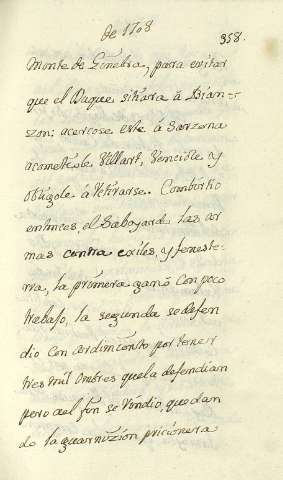 de 1708
358.
Monte de Ginebra, para evitar
que el Duque sitiara á Brian-
zon: acercose este á Sarzena
acometiole Villart, Venciole y
obligole á retirarse. Combirtio
entonces, el Saboyardo las ar
mas contra exiles, y fenestè-
rra, la primera ganó Con poco
trabajo, la segunda se defen
dio con ardimiento por tener
tres mil ombres que la defendian
pero al fin se rondio, quedan
do la guarnizion pricionera